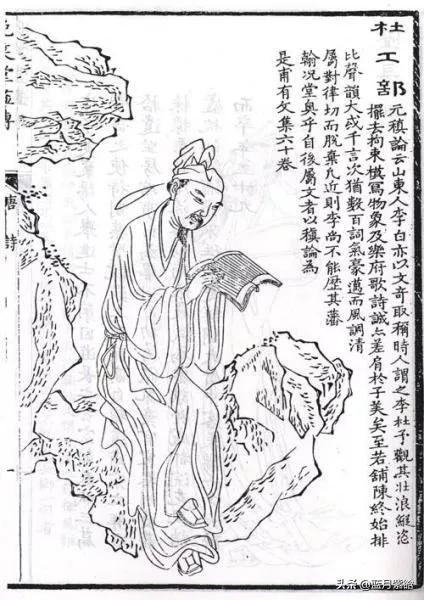 杜工部
元稹論云山東人李白亦以文奇取稱時人謂之李杜予觀其壯浪縱恣
擺去拘束模寫物象及樂府歌詩誠亦差肩於子美矣至若鋪陳終始排
比聲韻大或千言次猶數百詞氣豪邁而風調清
屬對律切而脫棄凡近則李尚不能歷其藩
翰況堂奧乎自後屬文者以稹論為
是甫有文集六十卷
笑堂畫傳
唐詩
头条 @蓝月紫皓